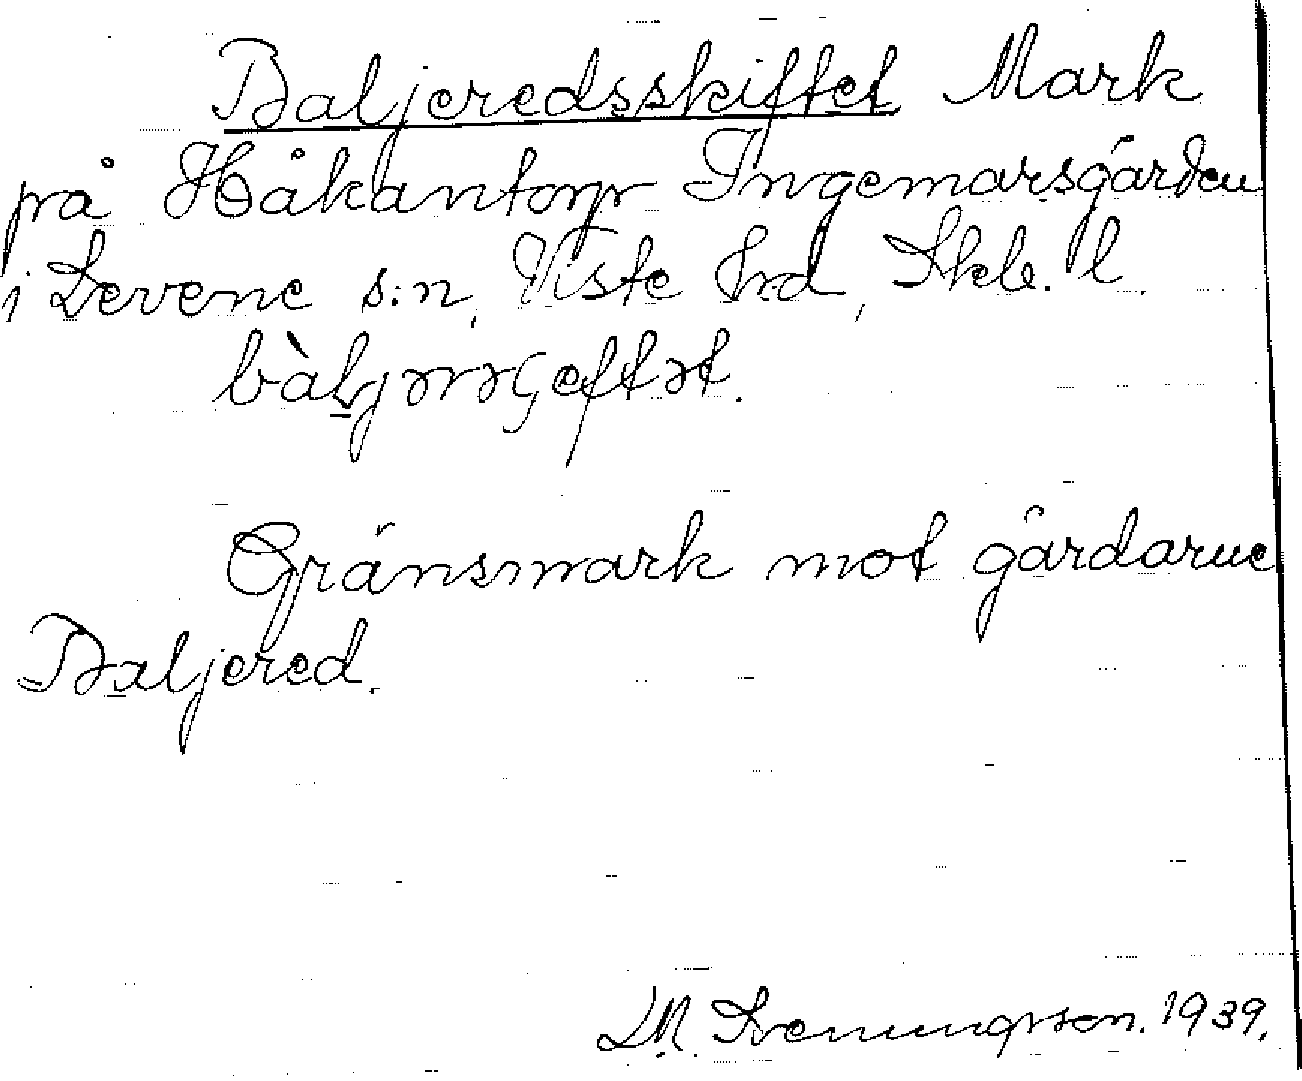 Baljeredsskiftet Mark
på Håkantorp Ingemarsgården
i Levene s:n, Viste hrd, Skb. l.
Gränsmark mot gårdarne
Baljered.
L.M. Svenungsson. 1939.